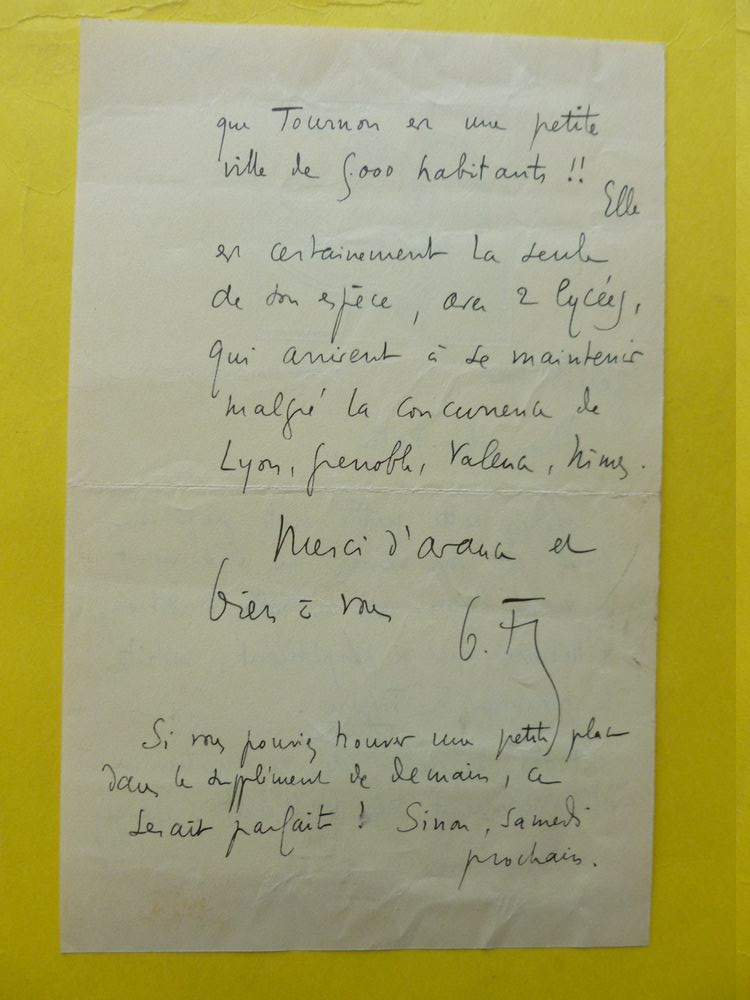 que Tournon est une petite
ville de 5.000 habitants !!
Elle
est certainement la seule
de son espèce, avec 2 lycées,
qui arrivent à se maintenir
malgré la concurrence de
Lyon, Grenoble, Valence, Nimes.
Merci d'avance et
bien à vous
G. F
Si vous pouviez trouver une petite place
dans le supplément de demain, ce
serait parfait ! Sinon, samedi
prochain.